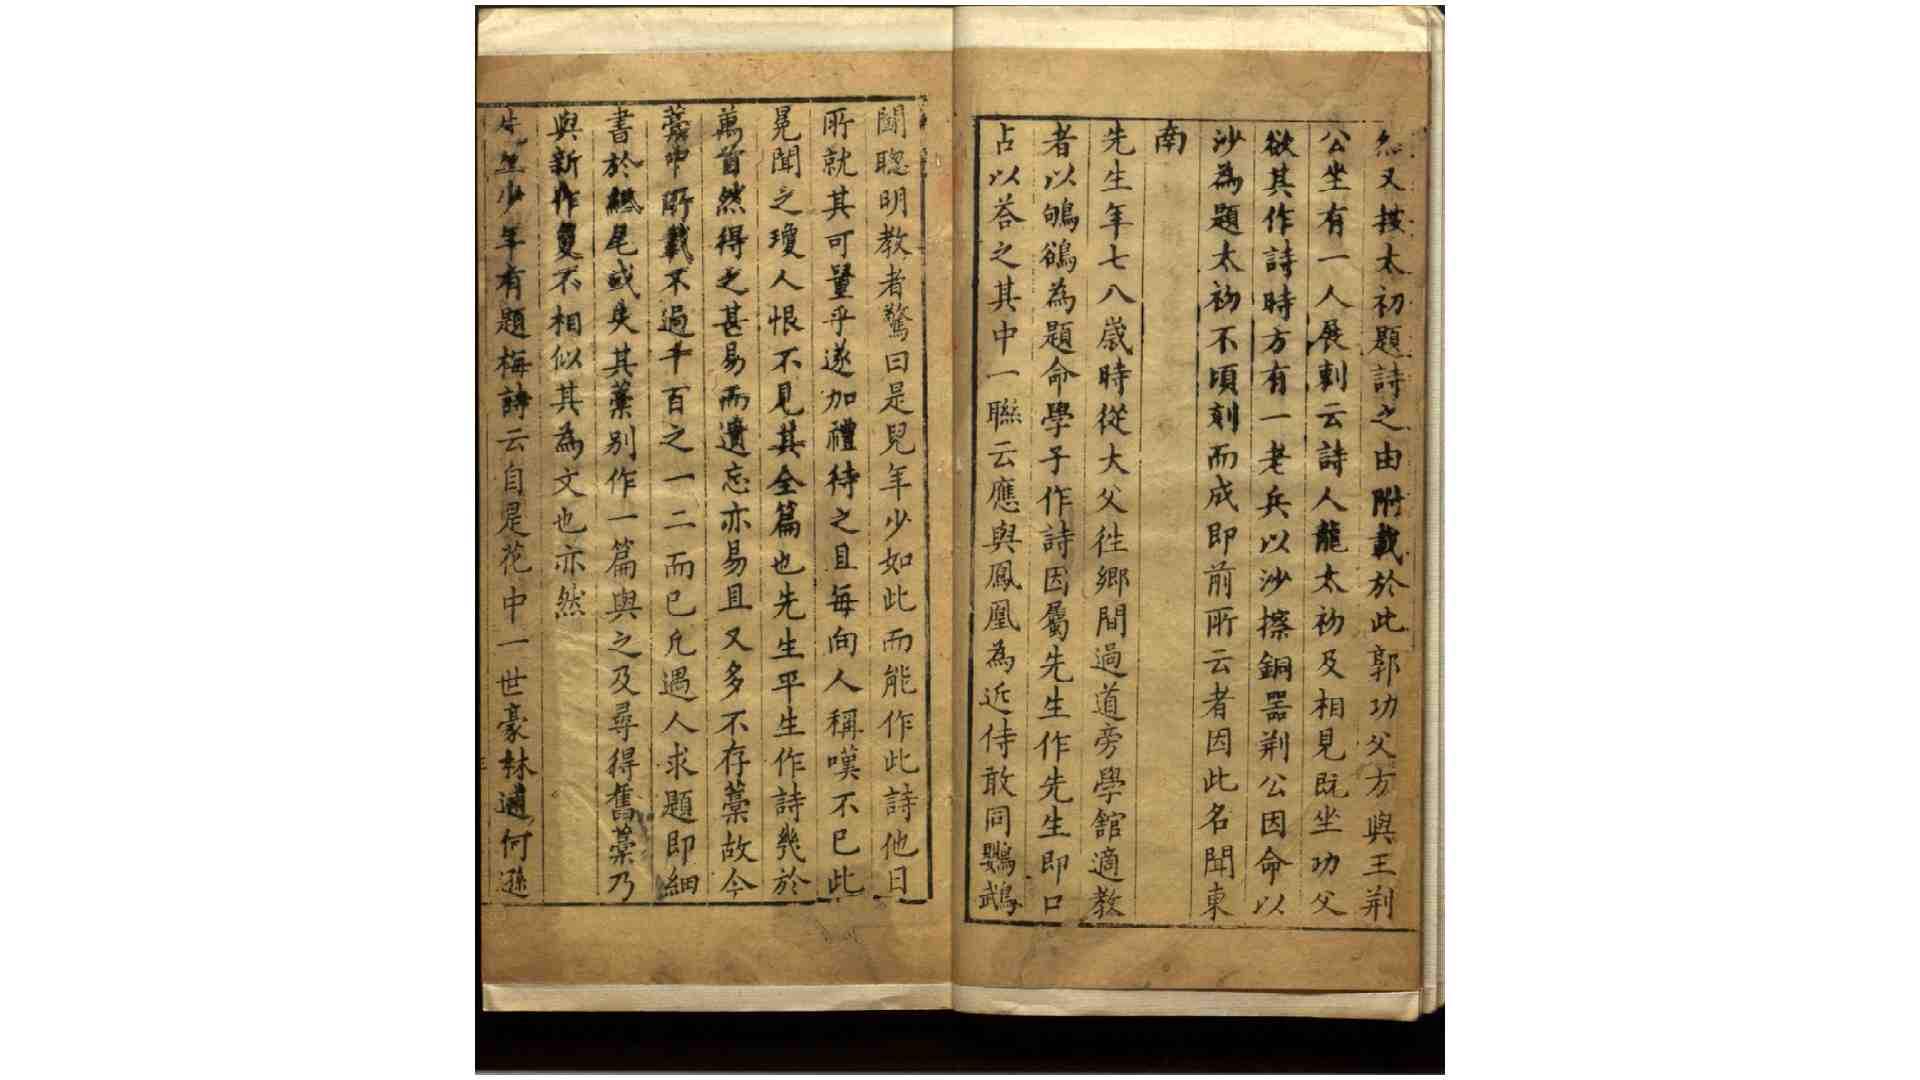 然又按太初題詩之由附載於此郭功父方與王荆
公坐有一人展刺云詩人龍太初及相見既坐功父
欲其作詩時方有一老兵以沙擦銅器荆公因命以
沙為題太初不頃刻而成即前所云者因此名聞東
南
先生年七八歲時從大父徃鄉間過道旁學舘適教
者以鴝鵒為題命學子作詩因屬先生作先生即口
占以荅之其中一聯云應與鳳凰為近侍敢同鸚鵡
鬪聰明教者驚曰是兒年少如此而能作此詩他日
所就其可量乎遂加禮待之且每向人稱嘆不已此
晃聞之瓊人恨不見其全篇也先生平生作詩幾於
萬首然得之甚易而遺忘亦易且又多不存藁故今
藁中所載不過千百之一二而已凢遇人求題即細
書於紙尾或失其藁别作一篇與之及尋得舊藁乃
與新作夐不相似其為文也亦然
先生少年有題梅詩云自是花中一世豪林逋何遜